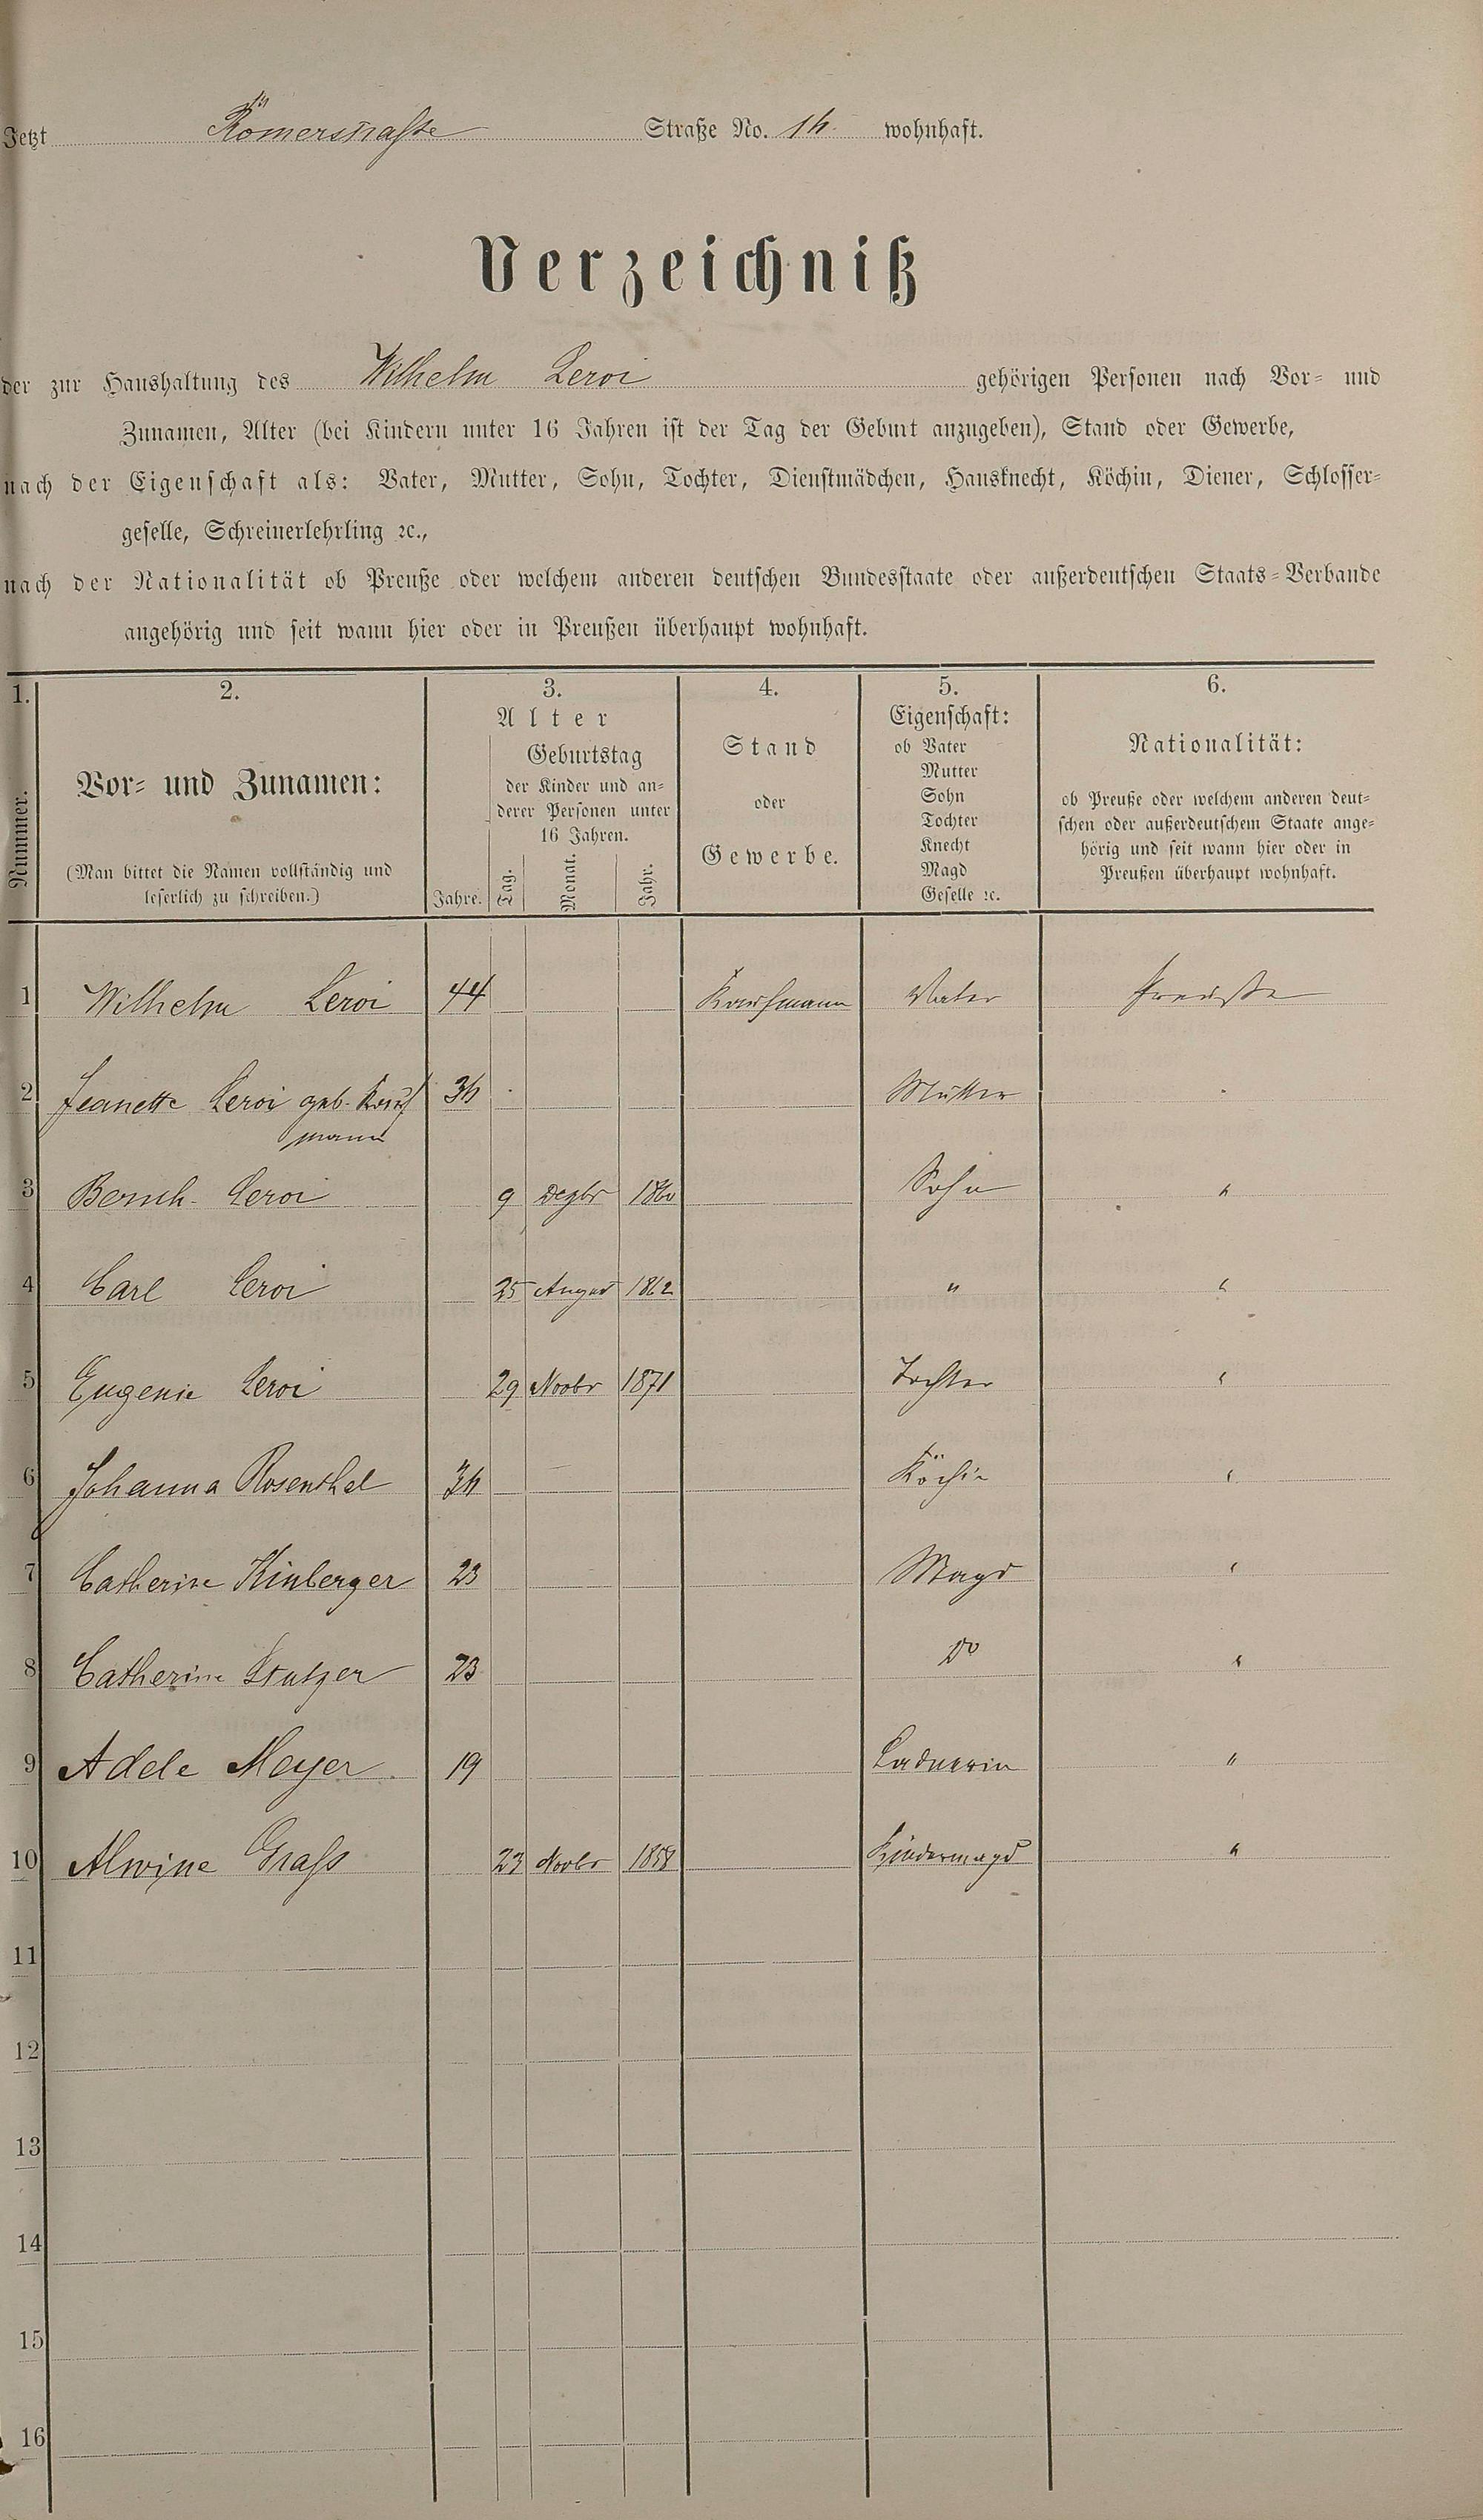 Jetzt Römerstraße Straße No. 16 wohnhaft.
Verzeichniß
der zur Haushaltung des Wilhelm Leroi gehörigen Personen nach Vor- und
Zunamen, Alter (bei Kindern unter 16 Jahren ist der Tag der Geburt anzugeben), Stand oder Gewerbe,
nach der Eigenschaft als: Vater, Mutter, Sohn, Tochter, Dienstmädchen, Hausknecht, Köchin, Diener, Schlosser-
geselle, Schreinerlehrling ꝛc.,
nach der Nationalität ob Preuße oder welchem anderen deutschen Bundesstaate oder außerdeutschen Staats-Verbande
angehörig und seit wann hier oder in Preußen überhaupt wohnhaft.
1. 2. 3. 4. 5. 6.
Nummer.
Vor- und Zunamen:
(Man bittet die Namen vollständig und
leserlich zu schreiben.)
Alter
Jahre.
Geburtstag
der Kinder und an-
derer Personen unter
16 Jahren.
Tag. Monat. Jahr.
Stand
oder
Gewerbe.
Eigenschaft:
ob Vater
Mutter
Sohn
Tochter
Knecht
Magd
Geselle ꝛc.
Nationalität:
ob Preuße oder welchem anderen deut-
schen oder außerdeutschem Staate ange-
hörig und seit wann hier oder in
Preußen überhaupt wohnhaft.
1 Wilhelm Leroi 44 Kaufmann Vater Preuße
2 Jeanette Leroi geb. Kauf 36 Mutter
mann
3 Bernh. Leroi 9 Dezbr 1860 Sohn "
4 Carl Leroi 25 August 1862 " "
5 Eugenie Leroi 29 Novbr 1871 Tochter "
6 Johanna Rosenthal 36 Köchin "
7 Catherine 23 Magd "
8 Catherine Stutzer 23 do "
9 Adele Meyer 19 Ladnerin "
10 Alwine Graß 23 Novbr 1858 Kindermagd "
11
12
13
14
15
16